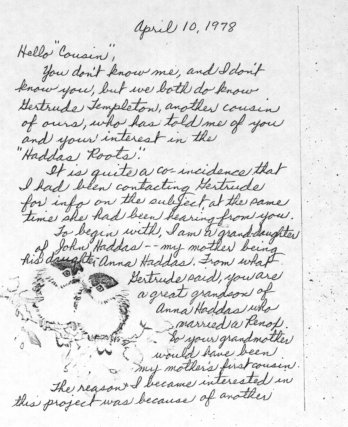 April 10, 1978
Hello "Cousin",
You don't know me, and I don't
know you, but we both do know
Gertrude Templeton, another cousin
of ours, who has told me of you
and your interest in the
"Haddas Roots".
It is quite a co-incidence that
I had been contacting Gertrude
for info on the subject at the same
time she had been hearing from you.
To begin with, I am a granddaughter
of John Haddas -- my mother being
his daughter Anna Haddas. From what
Gertrude said, you are
a great grandson of
Anna Haddas who
married a
So your grandmother
would have been
my mother's first cousin.
The reason I became interested in
this project was because of another